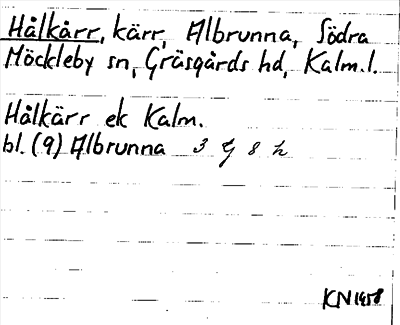 Hålkärr, kärr, Albrunna, Södra
Möckleby sn, Gräsgårds hd, Kalm.l.
Hålkärr ek Kalm.
bl. (9) Albrunna 3 G 8 h
KN 1958